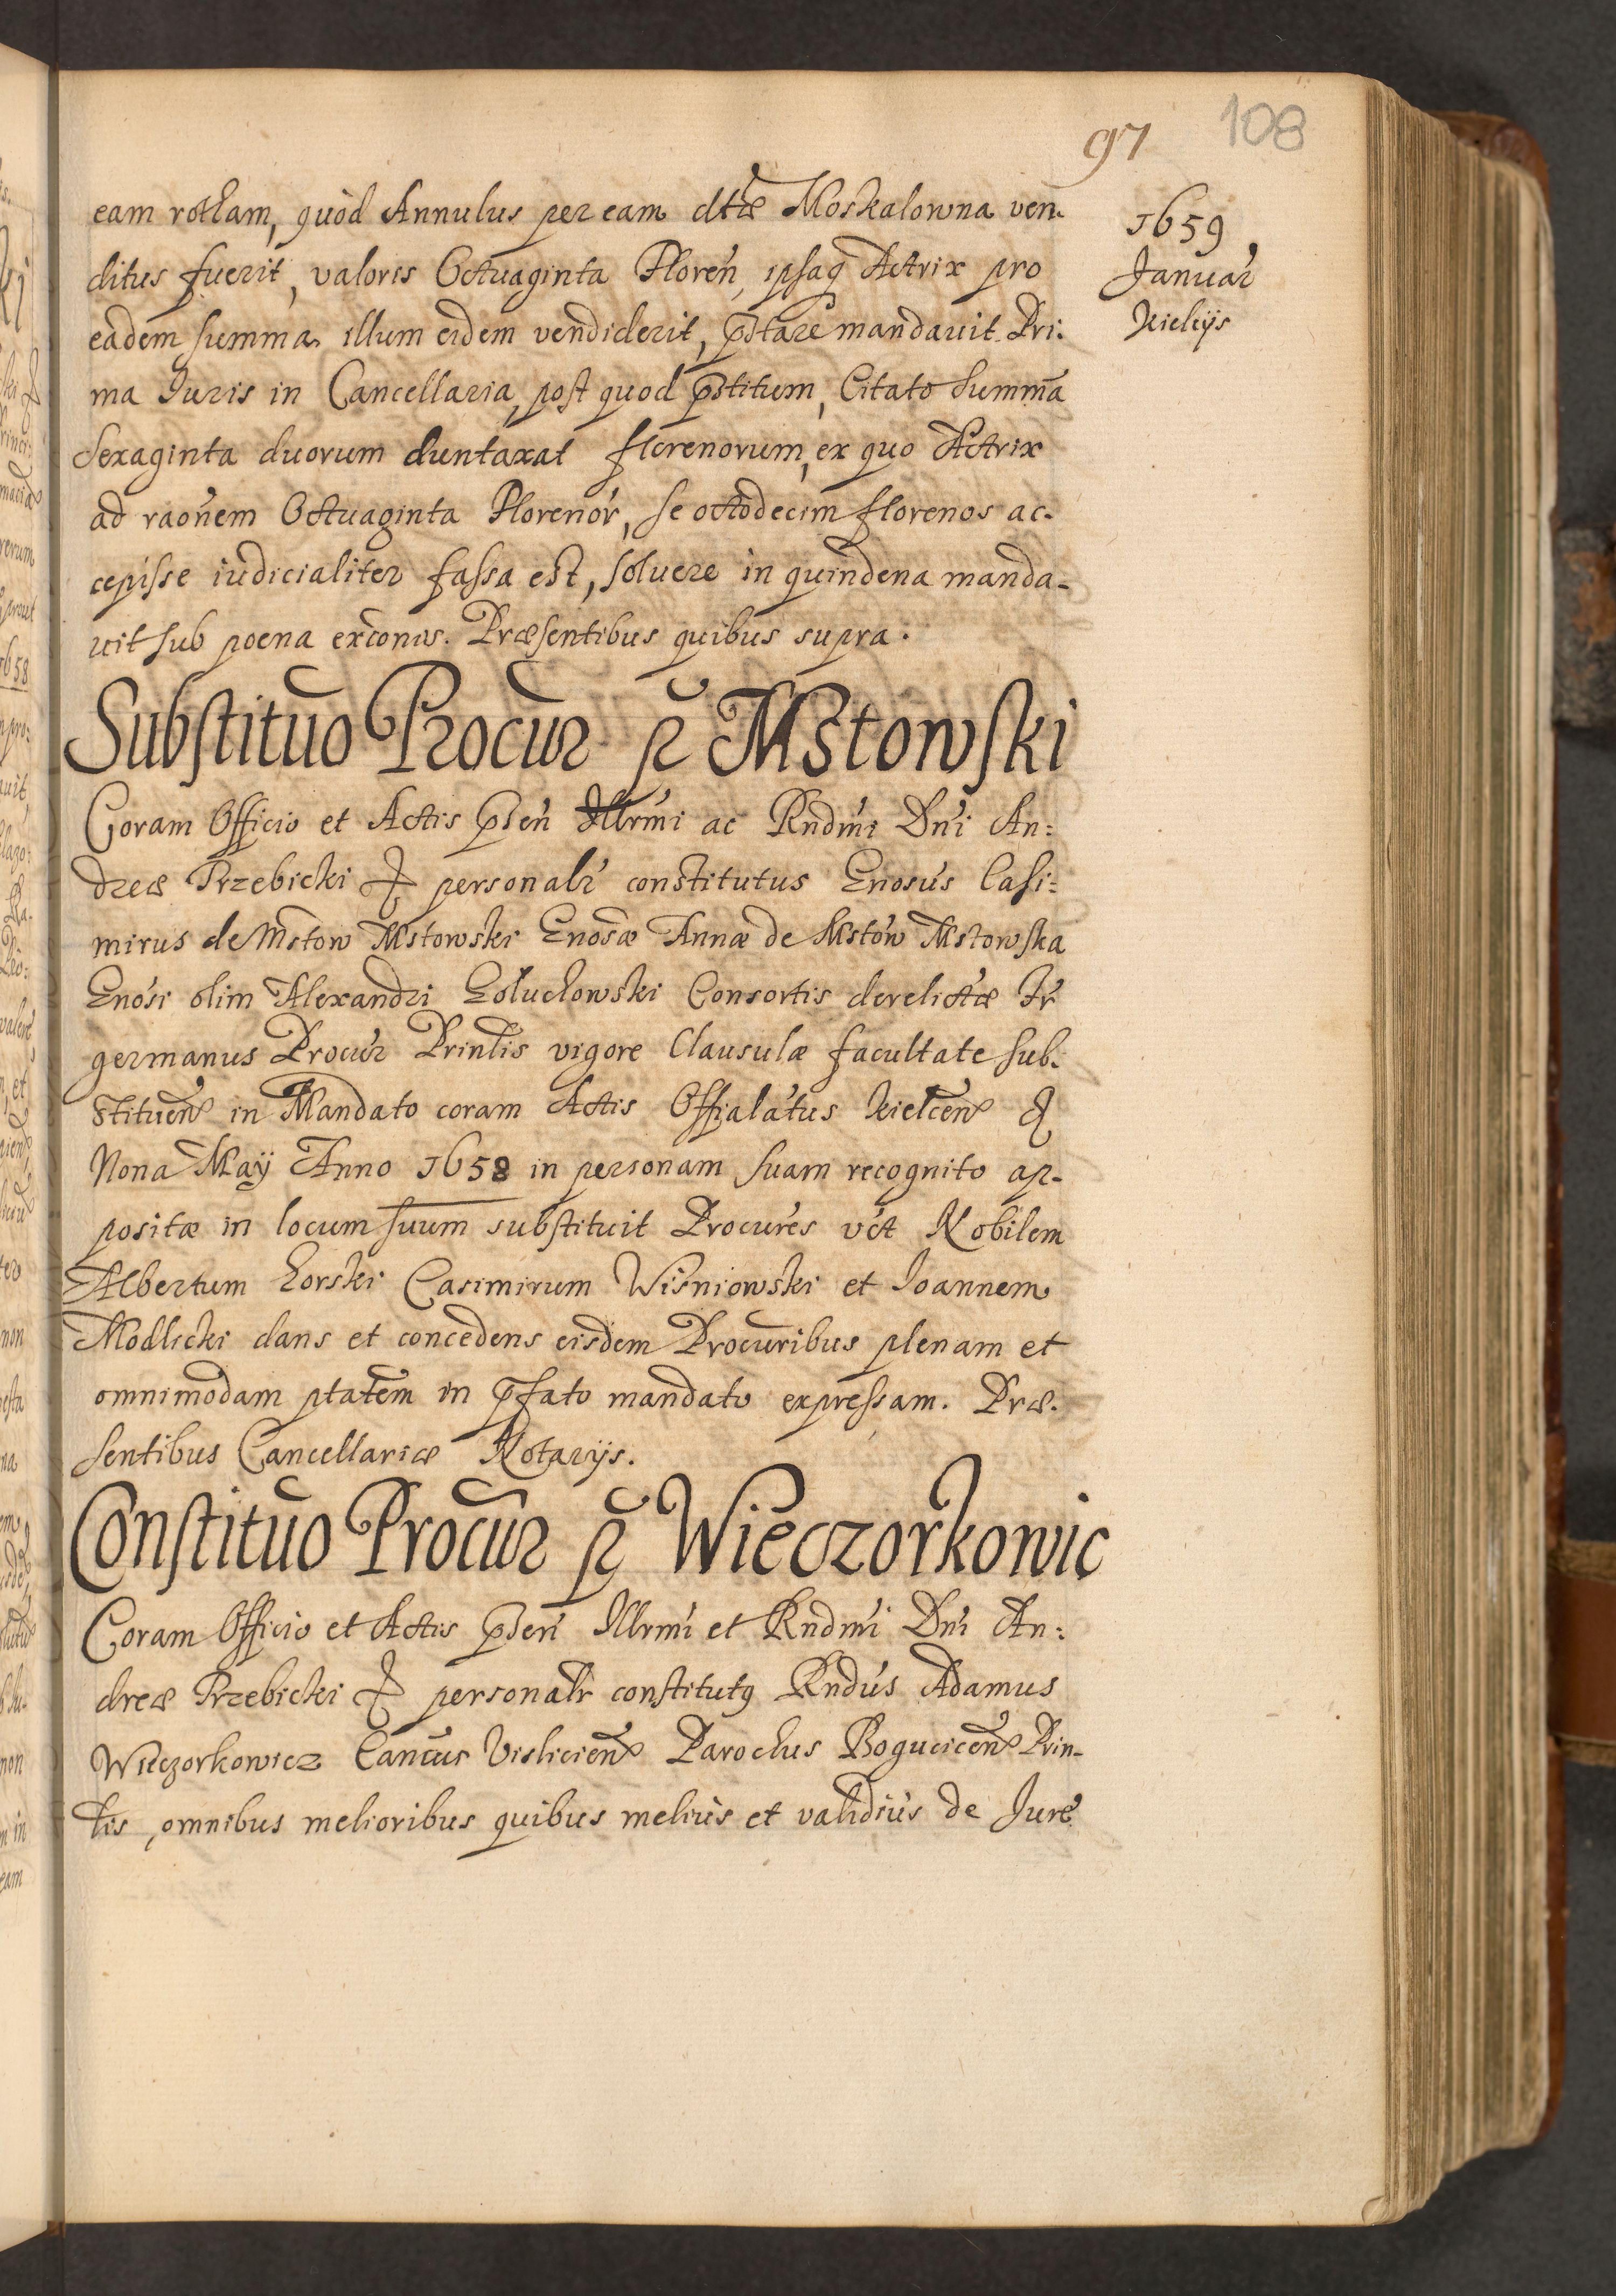 97 108
1659
Januar
Kielijs
eam rotham, quòd Annulus per eam dtæ Moskalowna ven-
ditus fuerit, valoris Octuaginta Floreń, ipsaq Actrix pro
eadem summa illum eidem vendiderit, pstare mandavit Pri:
ma Juris in Cancellaria, post quod pstitum, Citato summa
sexaginta duorum duntaxat florenorum, ex quo Actrix
ad raoñem Octuaginta Florenor, se octodecim florenos ac-
cepisse iudicialiter fassa est, soluere in quindena manda-
vit sub poena exconis. Præsentibus quibus supra.
Substituo Procur p Mstowski
Coram Officio et Actis psen Illrmi ac Rndmi Dni An:
dreæ Trzebicki & personalr constitutus Gnosus Casi:
mirus de Mstow Mstowski Gnosæ Annæ de Mstow Mstowska
Gnosi olim Alexandri Goluchowski Consortis derelictæ fr
germanus Procur Prinlis vigore Clausulæ facultate sub-
stituen in Mandato coram Actis Offialatus Kielcen &
Nona Maÿ Anno 1658 in personam suam recognito ap-
positæ in locum suum substituit Procures vct Nobilem
Albertum Gorski Casimirum Wisniowski et Joannem
Modlicki dans et concedens eisdem Procuribus plenam et
omnimodam ptatem in pfato mandato expressam. Præ-
sentibus Cancellariæ Notarijs.
Constituo Procur p Wieczorkowic
Coram Officio et Actis psen Illrmi et Rndmi Dni An:
dreæ Trzebicki & personalr constitutq Rndus Adamus
Wieczorkowicz Cancus Vislicien Parochus Bogucicen Prin-
lis, omnibus melioribus quibus melius et validius de Jure